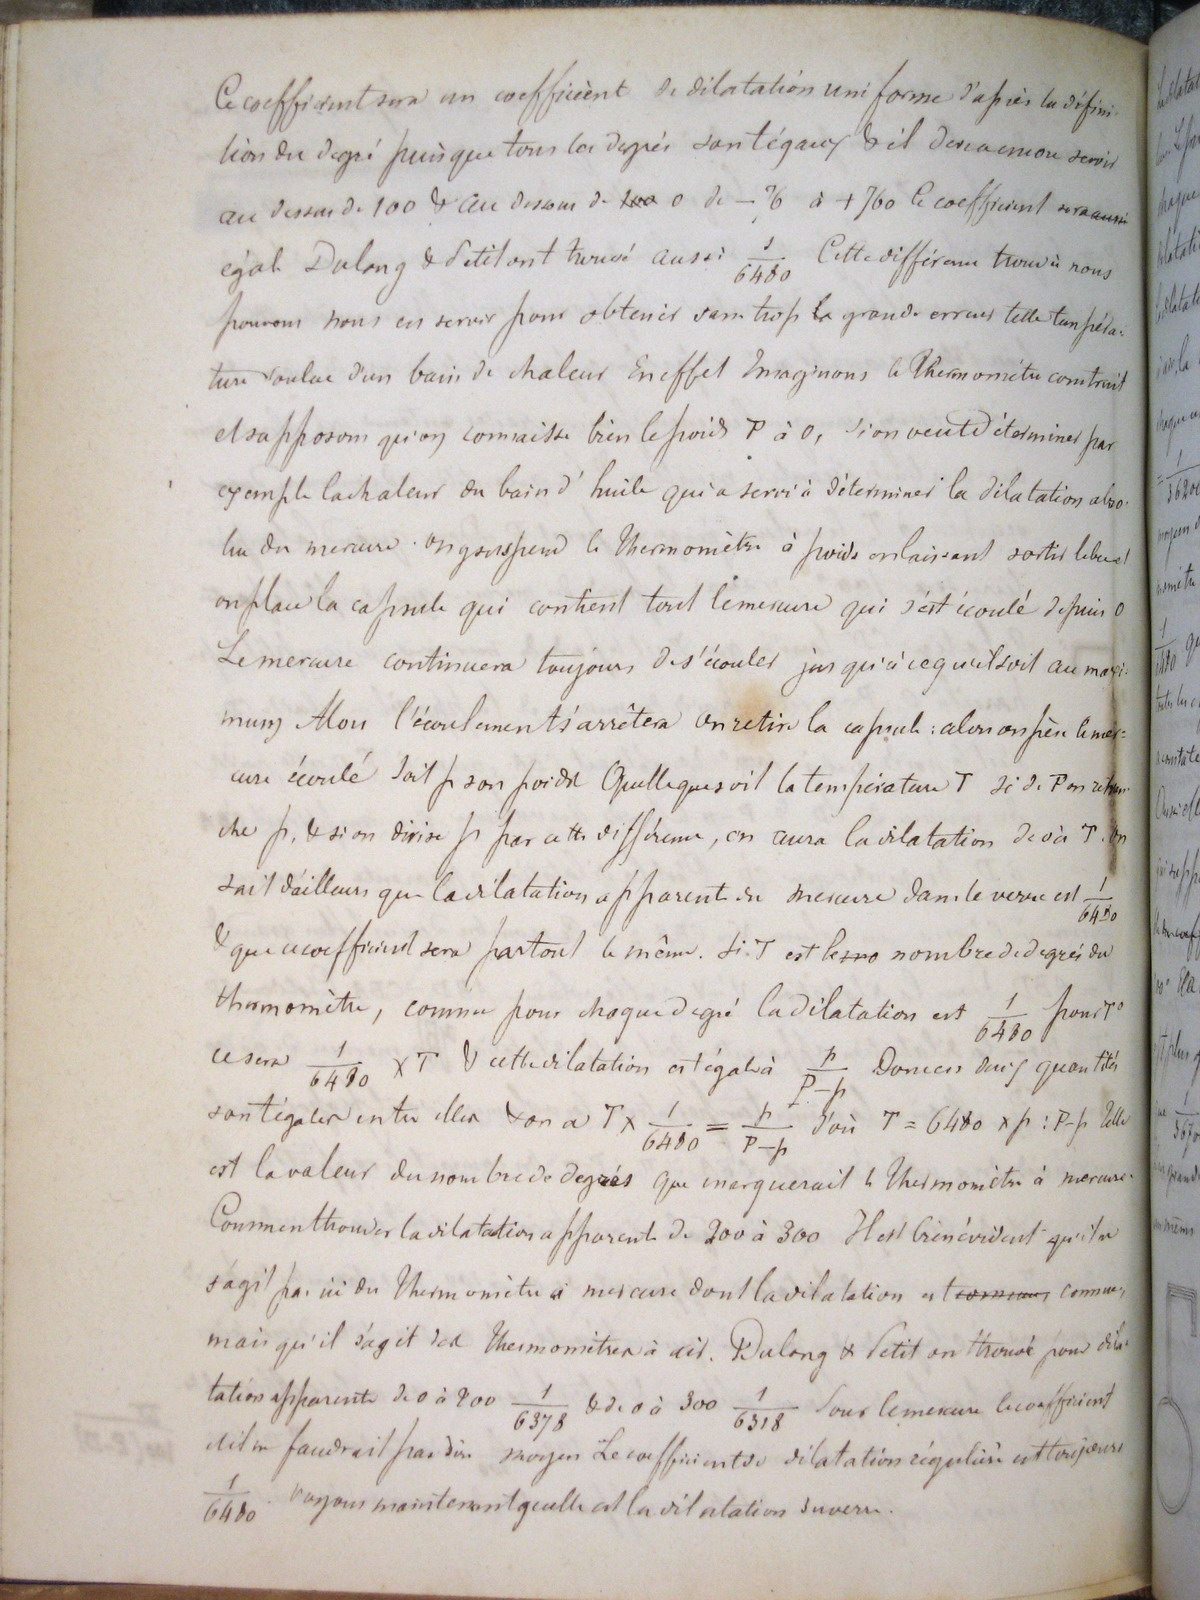 Ce coefficient sera un coefficient de dilatation uniforme d'après la défini-
tion du degré puisque tous les degrés sont égaux & il devra encore servir
au dessus de 100 & au dessous de 100 0 de - 76 à + 760 le coefficient sera aussi
égal Dulong & Petit ont trouvé aussi 1/6480 Cette différence trouvée nous
pouvons nous en servir pour obtenir sans trop la grande erreur telle tempéra-
ture voulue d'un bain de chaleur En effet Imaginons le Thermomètre construit
et supposons qu'on connaisse bien le poids P à 0, si on veut déterminer par
exemple la chaleur du bain d'huile qui a servi à déterminer la dilatation abso-
lue du mercure. on y suspend le Thermomètre à poids en laissant sortir le bec et
on place la capsule qui contient tout le mercure qui s'est écoulé depuis 0
Le mercure continuera toujours de s'écouler jusqu'à ce qu'il soit au maxi-
mum Alors l'écoulement s'arrêtera on retire la capsule : alors on pèse le mer-
cure écoulé soit p son poids Quelle que soit la température T si de P on retran-
che p, & si on divise p par cette différence, on aura la dilatation de 0 à T. On
sait d'ailleurs que la dilatation apparente du mercure dans le verre est 1/6480
& que ce coefficient sera partout le même. Si T est le nombre de degrés du
thermomètre, comme pour chaque degré la dilatation est 1/6480 pour T°
ce sera 1/6480 × T & cette dilatation est égale à p/P-p Donc ces deux quantités
sont égales entre elles & on a T × 1/6480 = p/P-p d'où T = 6480 × p : P-p Telle
est la valeur du nombre de degrés que marquerait le Thermomètre à mercure.
Comment trouver la dilatation apparente de 200 à 300 Il est bien évident qu'il ne
s'agit pas ici du Thermomètre à mercure dont la dilatation est connue connue,
mais qu'il s'agit des Thermomètres à air. Dulong & Petit on trouvé pour dila-
tation apparente de 0 à 200 1/6378 & de 0 à 300 1/6318 Pour le mercure le coefficient
il ne faudrait pas dire moyen Le coefficient de dilatation régulière est toujours
1/6480. voyons maintenant quelle est la dilatation du verre.